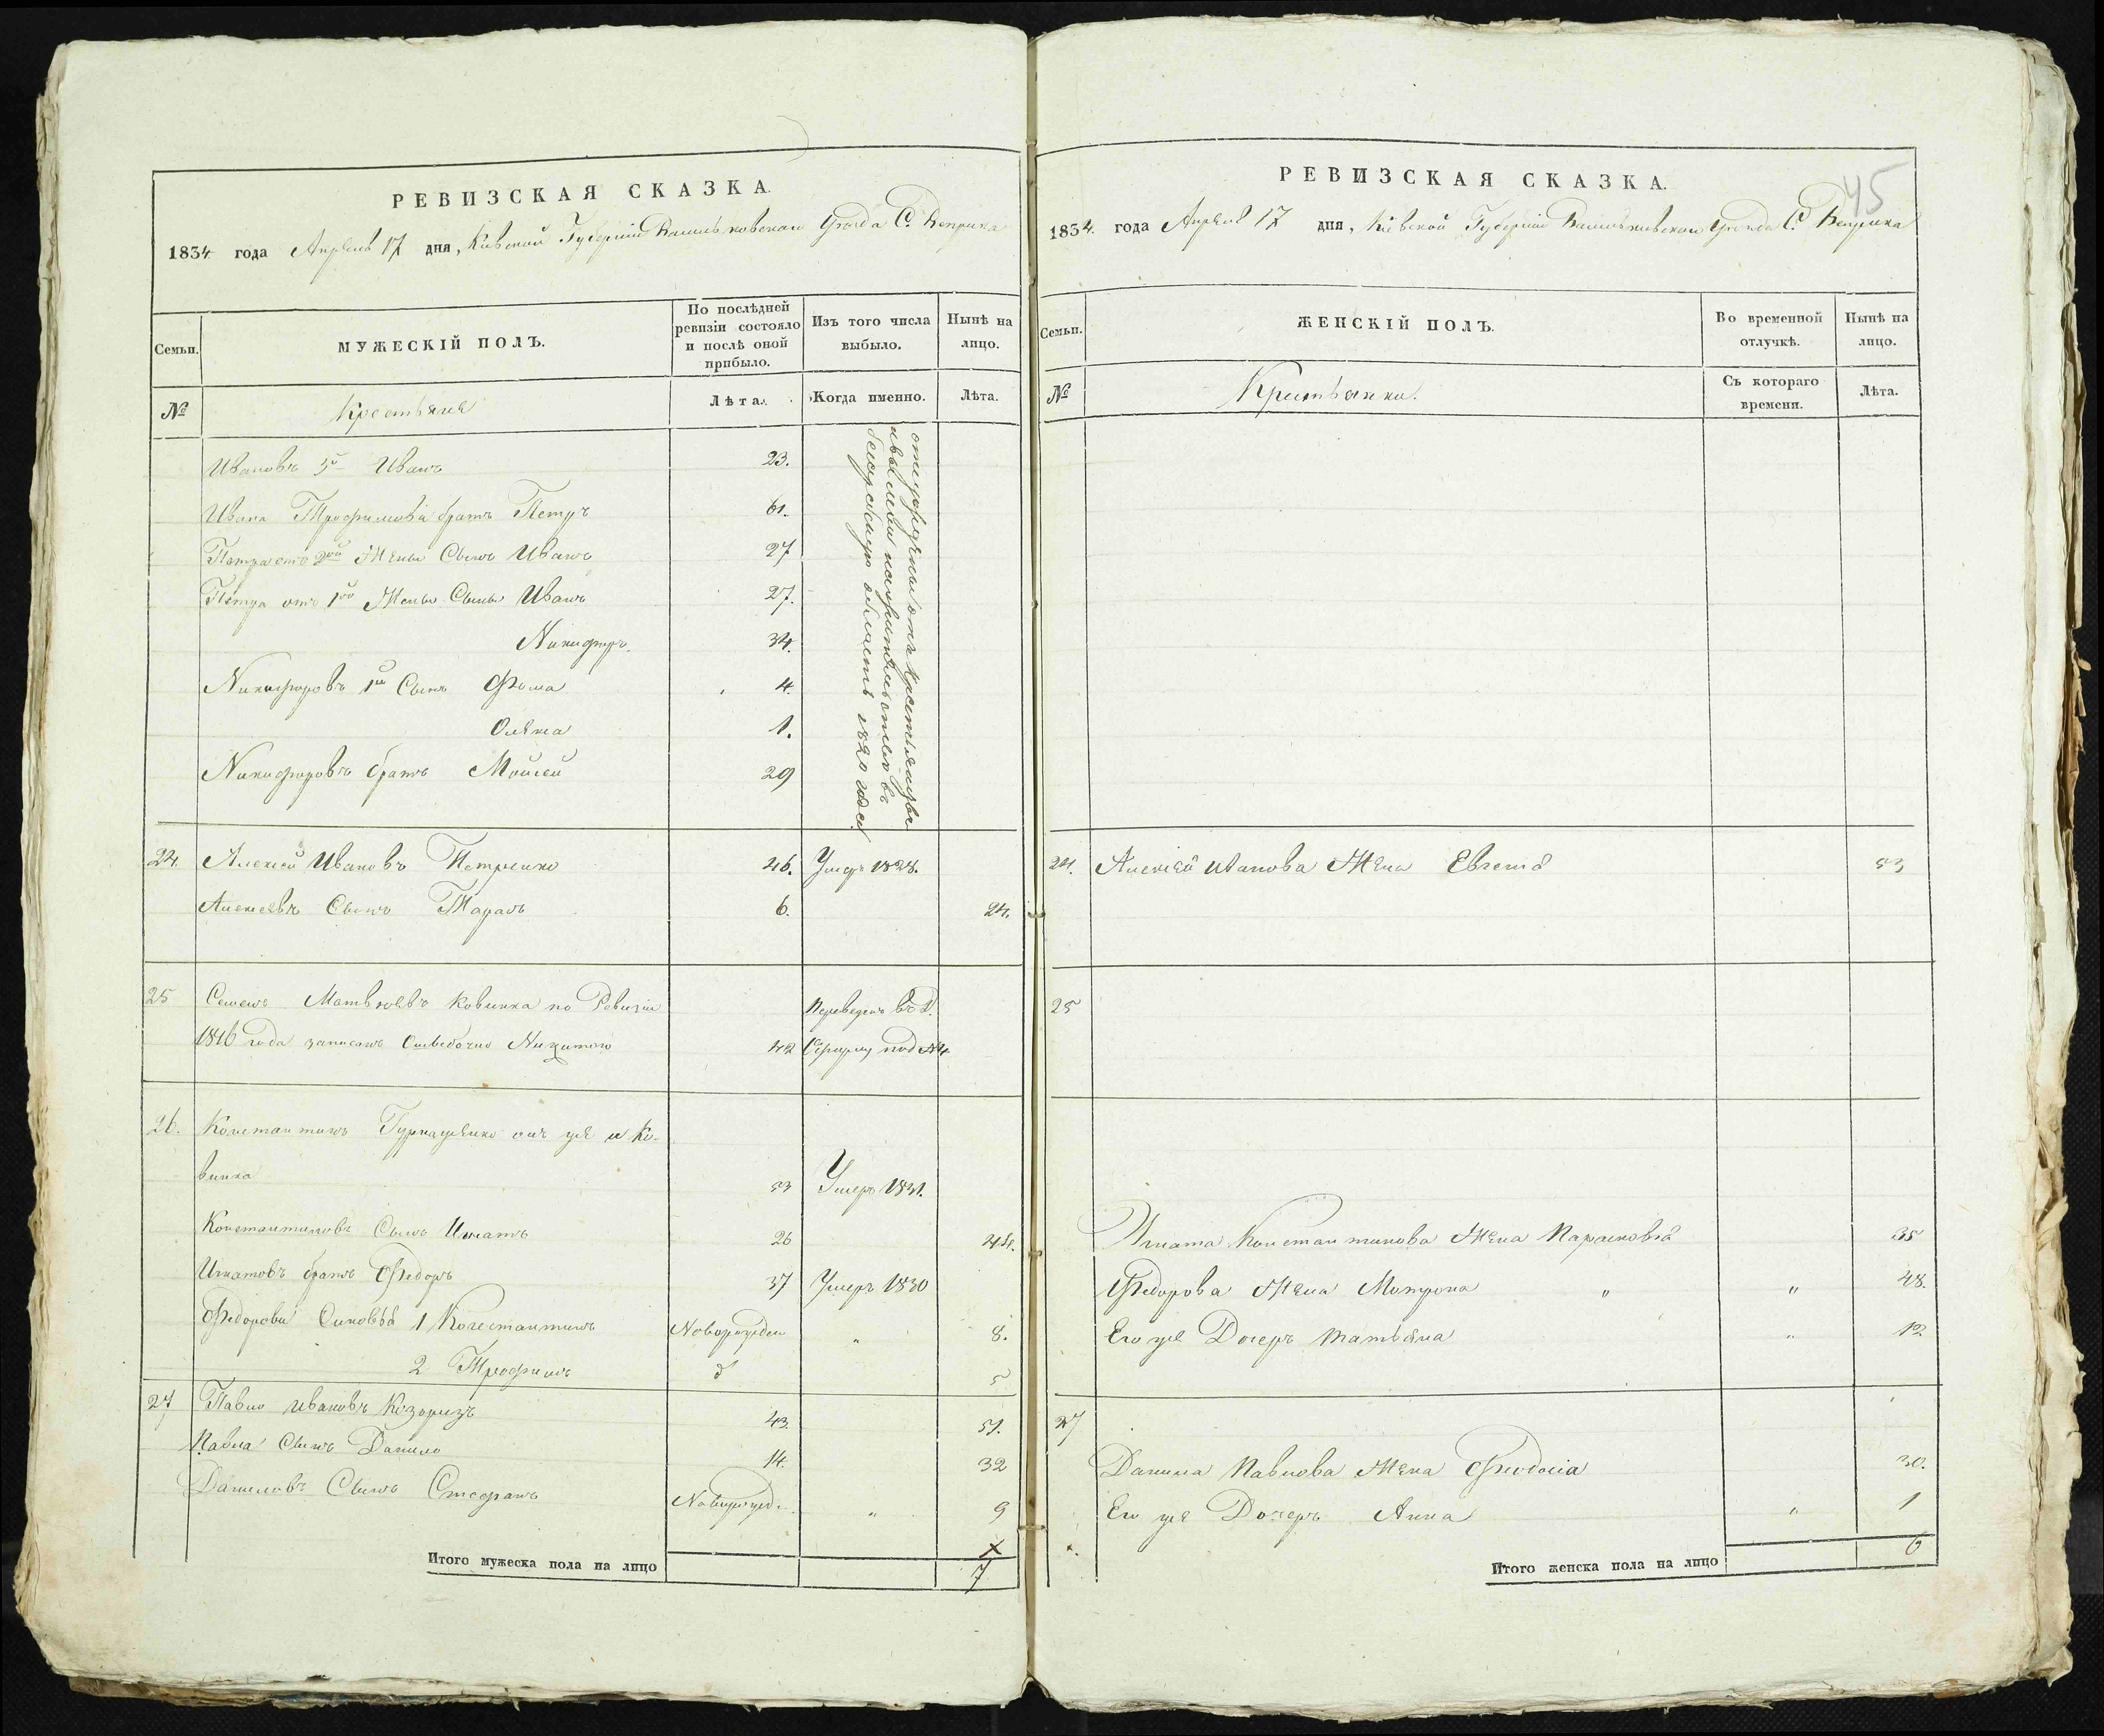 РЕВИЗСКАЯ СКАЗКА.
1834 года Апреля 17 дня, Кіевской Губерніи Васильковскаго Уезда С.
Семьи.
МУЖЕСКІЙ ПОЛЪ.
По послѣдней
ревизіи состояло
и послѣ оной
прибыло.
Изъ того числа
выбыло.
Нынѣ на
лицо.
№
Крестьяне
Лѣта.
Когда именно.
Лѣта.
Ивановъ 3й Иванъ 23.
Ивана Трофимова братъ Петръ 61.
Петра отъ 2ой Жены Сынъ Иванъ 27
Петра отъ 1ой Жены Сыны Иванъ 27.
Никифоръ. 34.
Никифоровъ 1й Сынъ Фома 4.
Олекса 1.
Никифоровъ братъ Мойсей 29
область 1820 года
24. Алексей Ивановъ Петренко 46. Умеръ 1828.
Алексеевъ Сынъ Тарасъ 6. 24.
25 Семенъ Матвеевъ Ковинка по Ревизіи Переведенъ въ Д.
1816 года записанъ Никитою 42 под №4.
26. Константинъ онъ же и Ко-
винка 53 Умеръ 1831.
Константиновъ Сынъ Игнатъ 26 44.
Игнатовъ братъ Федоръ 37 Умеръ 1830
Федоровы Сыновья 1 Константинъ Новорожден " 8.
2 Трофимъ д 5
27 Павло Ивановъ Козоризъ 43. 51.
Павла Сынъ Данило 14. 32
Даниловъ Сынъ Стефанъ Новорожд. " 9
Итого мужеска пола на лицо 7
РЕВИЗСКАЯ СКАЗКА.
45
1834. года Апреля 17 дня, Кіевской Губерніи Васильковскаго Уезда С.
Семьи.
ЖЕНСКІЙ ПОЛЪ.
Во временной
отлучкѣ.
Нынѣ на
лицо.
№
Крестьянки.
Съ котораго
времени.
Лѣта.
24. Алексея Иванова Жена 53
25
Игната Константинова Жена Парасковья 35
Федорова Жена Мотрона " " 48.
Его же Дочерь Татьяна " 12
27
Данила Павлова Жена Феодосія 30.
Его же Дочерь Анна " 1
Итого женска пола на лицо 6